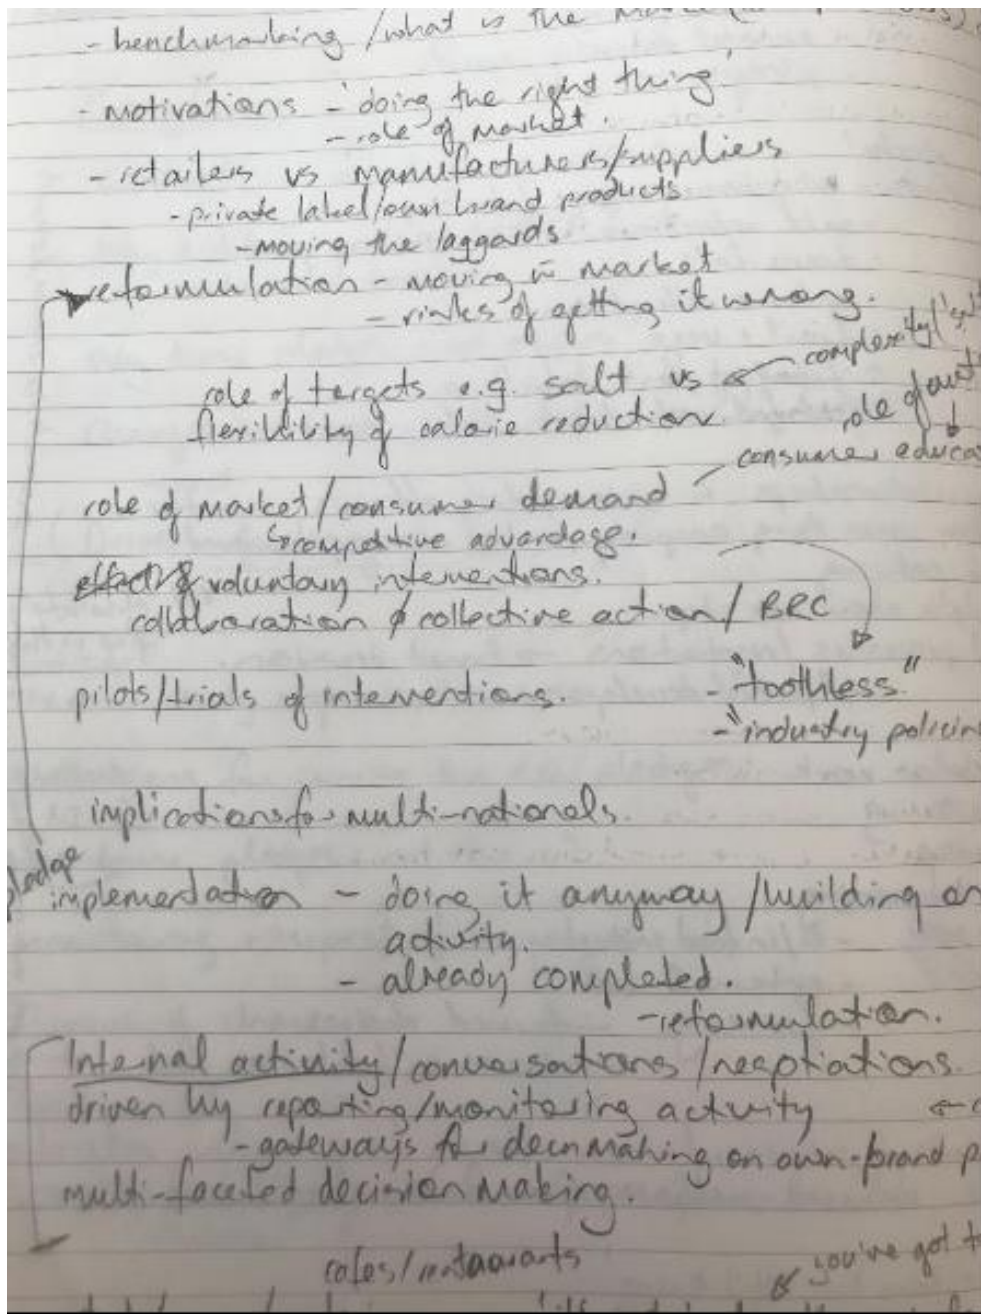 - benchmarking /what is the
- motivations - 'doing the right thing'
- role of market.
- retailers vs manufacturers/suppliers
- private label/own brand products
- moving the laggards.
reformulation - moving in market
- risks of getting it wrong.
complexity
role of targets e.g. salt vs
role of
flexibility of calorie reduction.
consumer educa
role of market/consumer demand
↳ competitive advantage.
effect of voluntary interventions.
collaboration & collective action/ BRC
pilots/trials of interventions. - "toothless"
- "industry policin
implications for multi-nationals.
pledge
implementation - doing it anyway /building on
activity.
- already completed.
- reformulation.
Internal activity/conversations/negotiations.
driven by reporting/monitoring activity
- gateways for decn making on own-brand p
multi-faceted decision making.
cafes/restaurants
you've got to